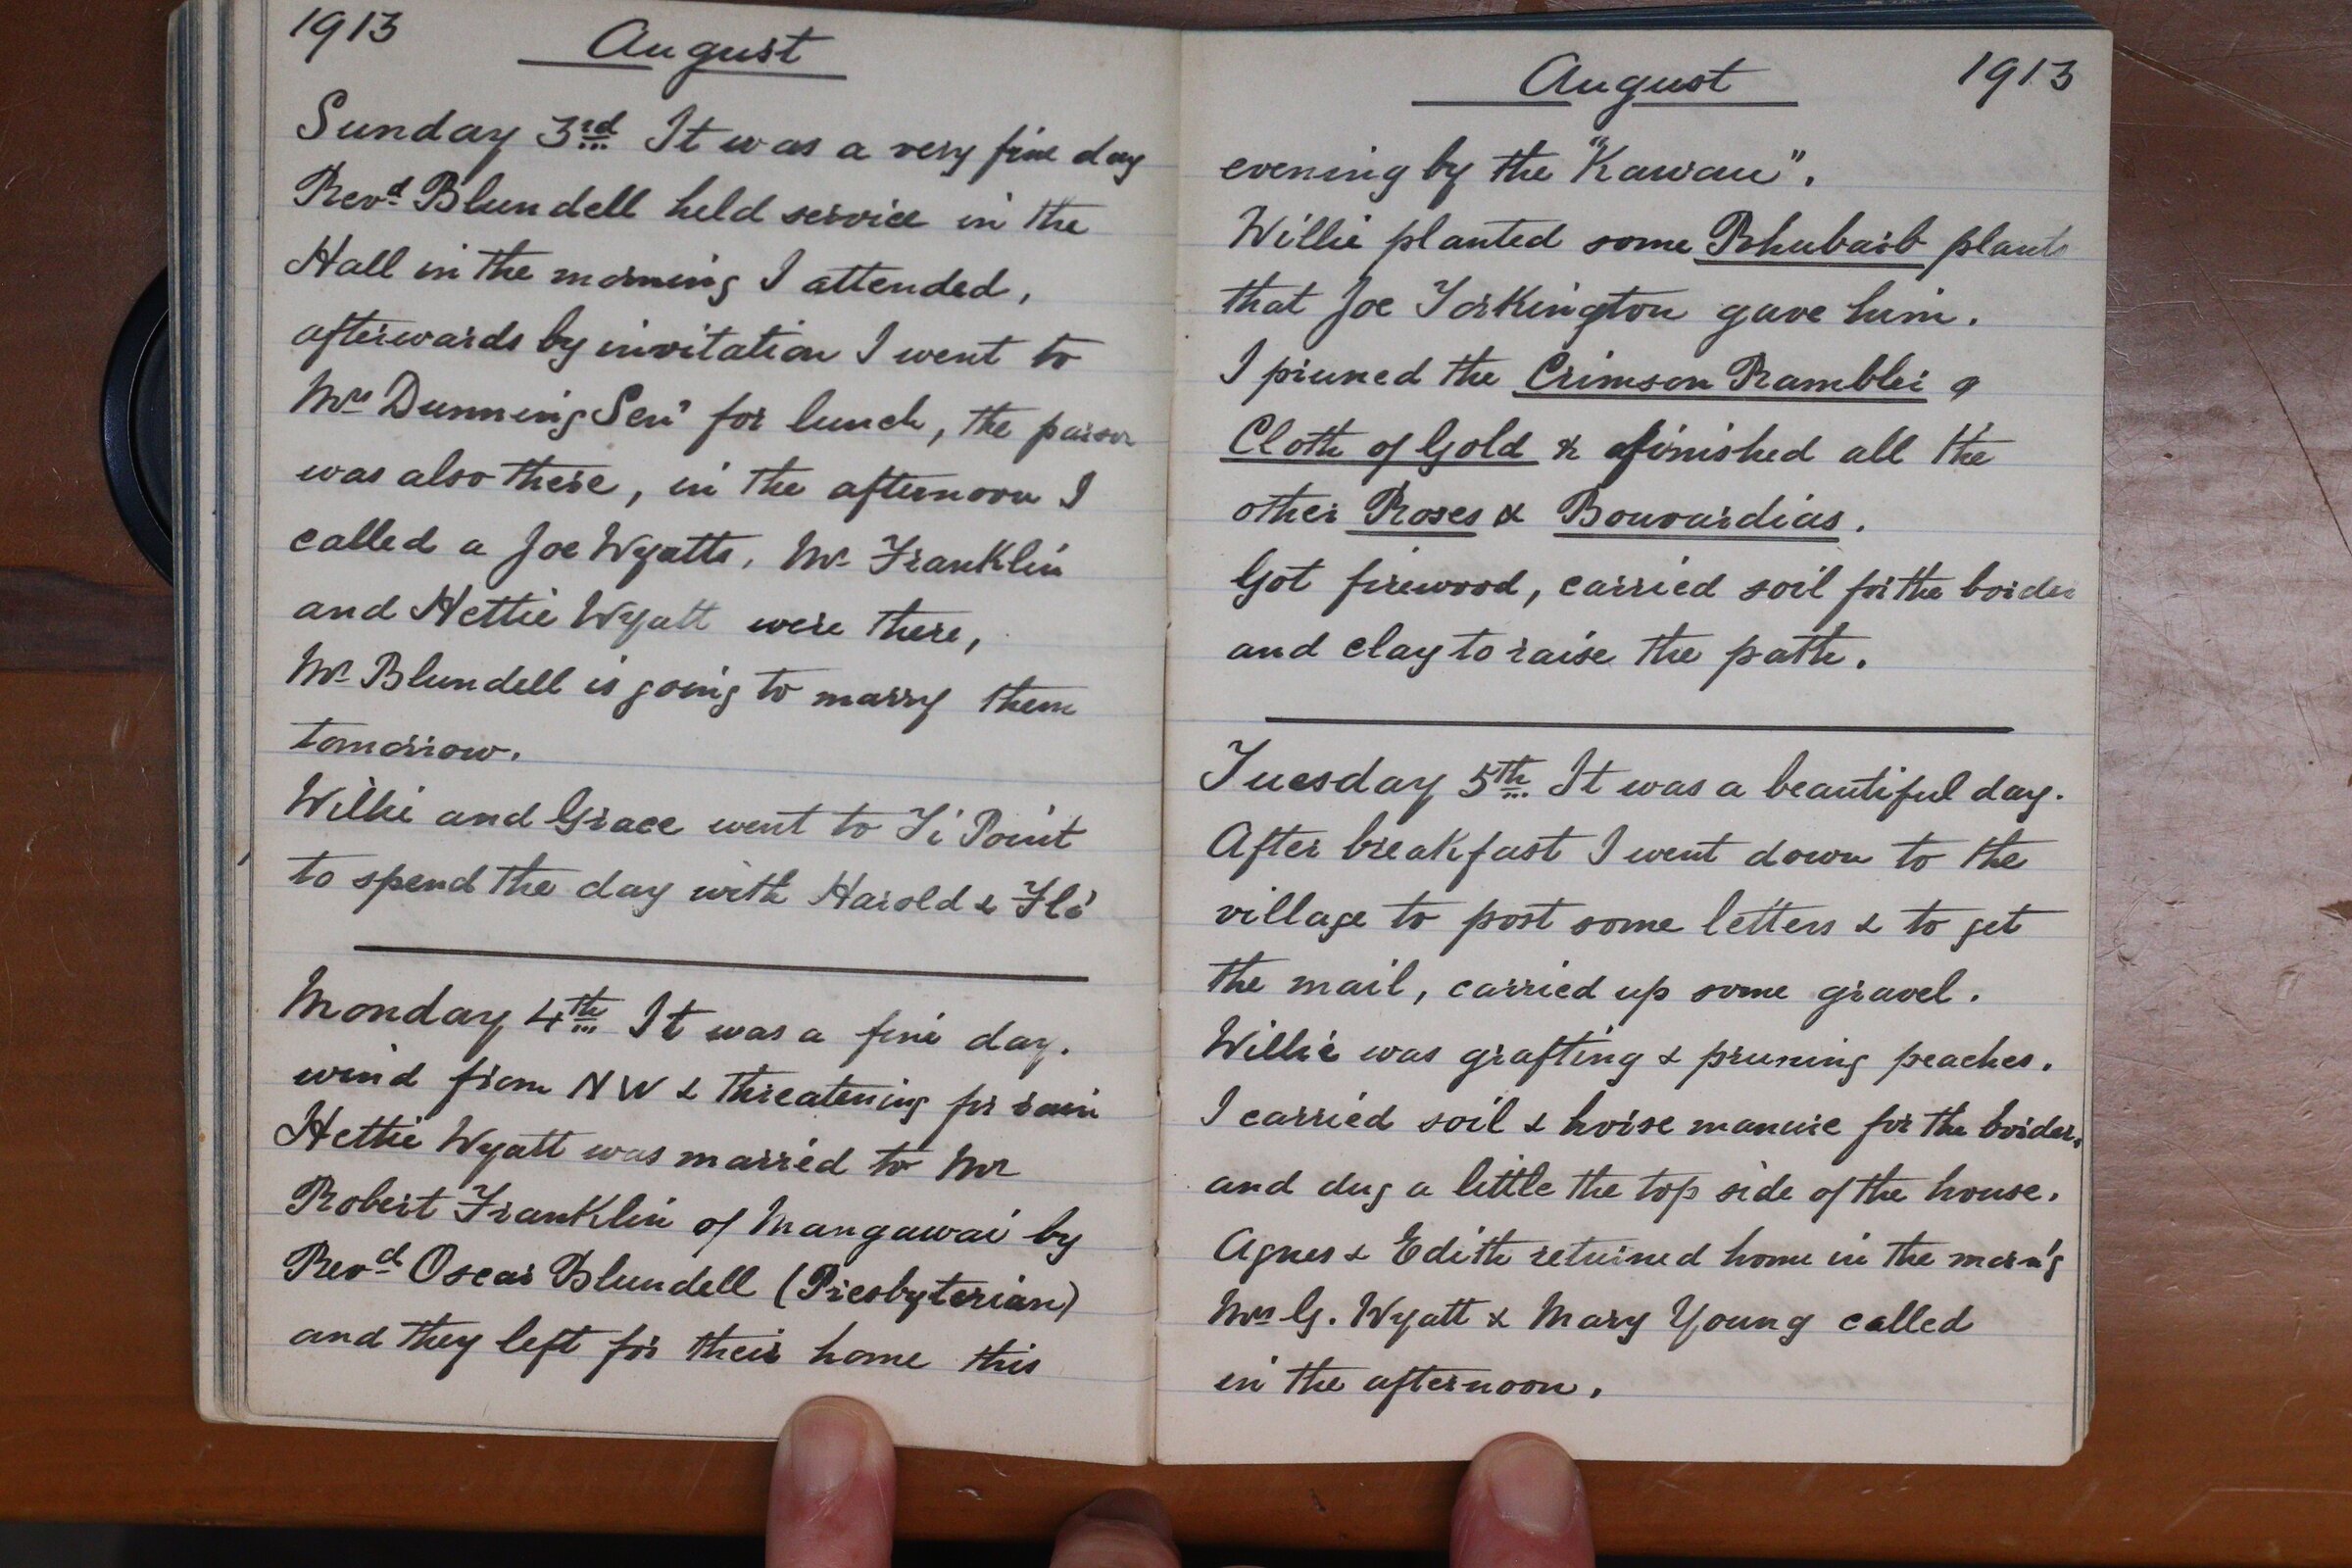 1913 August
Sunday 3rd It was a very fine day
Revd Blundell held service in the
Hall in the morning I attended,
afterwards by invitation I went to
Mrs Dunning Senr for lunch, the parson
was also there, in the afternoon I
called a Joe Wyatts, Mr Franklin
and Hettie Wyatt were there,
Mr Blundell is going to marry them
tomorrow.
Willie and Grace went to Ti Point
to spend the day with Harold & Flo
Monday 4th It was a fine day.
wind from NW & threatening for rain
Hettie Wyatt was married to Mr
Robert Franklin of Mangawai by
Revd Oscar Blundell (Presbyterian)
and they left for their home this
August 1913
evening by the "Kawau".
Willie planted some Rhubarb plants
that Joe Torkington gave him.
I pruned the Crimson Rambler &
Cloth of Gold & finished all the
other Roses & Bouvardias.
Got firewood, carried soil for the border
and clay to raise the path.
Tuesday 5th It was a beautiful day.
After breakfast I went down to the
village to post some letters & to get
the mail, carried up some gravel.
Willie was grafting & pruning peaches.
I carried soil & horse manure for the border,
and dug a little the top side of the house.
Agnes & Edith returned home in the morn'g
Mrs G. Wyatt & Mary Young called
in the afternoon.